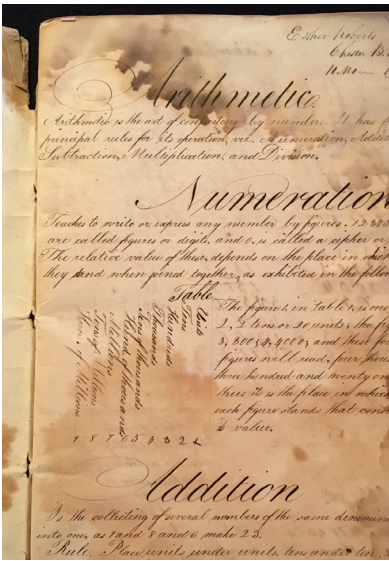 Esther Roberts
Chester
10 Mo
Arithmetic
Arithmetic is the art of computing by numbers. It has f
principal rules for its operation, viz. Numeration, Addit
Subtraction, Multiplication, and Division.
Numeration
Teaches to write or express any number by figures. 1234
are called figures or digits, and 0, is called a cypher or
The relative value of these, depends on the place in which
they stand when joined together, as exhibited in the follow
Table
Units
Tens
Hundreds
Thousands
Tens of thousands
Hund. of thousands
Millions
Tens of Millions
Hun. of Millions
9 8 7 6 5 4 3 2 1
The figure 1, in table 1, is one
2, 2 tens or 20 units; the
3, 300; 4, 4000; and these fo
figures will read, four thous
three hundred and twenty on
there it is the place in which
each figure stands that cons
its value.
Addition
Is the collecting of several numbers of the same denomin
into one; as 7 and 8 and 8 make 23.
Rule. Place units under units, tens under ten